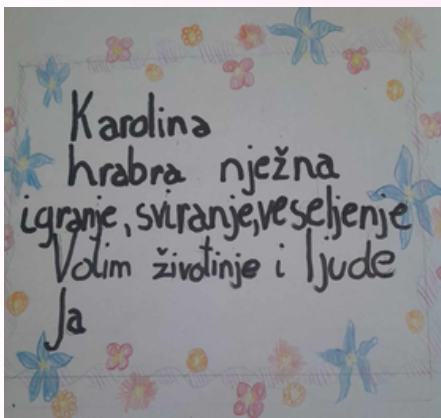 Karolina
hrabra nježna
igranje, sviranje, veseljenje
Volim životinje i ljude
Ja